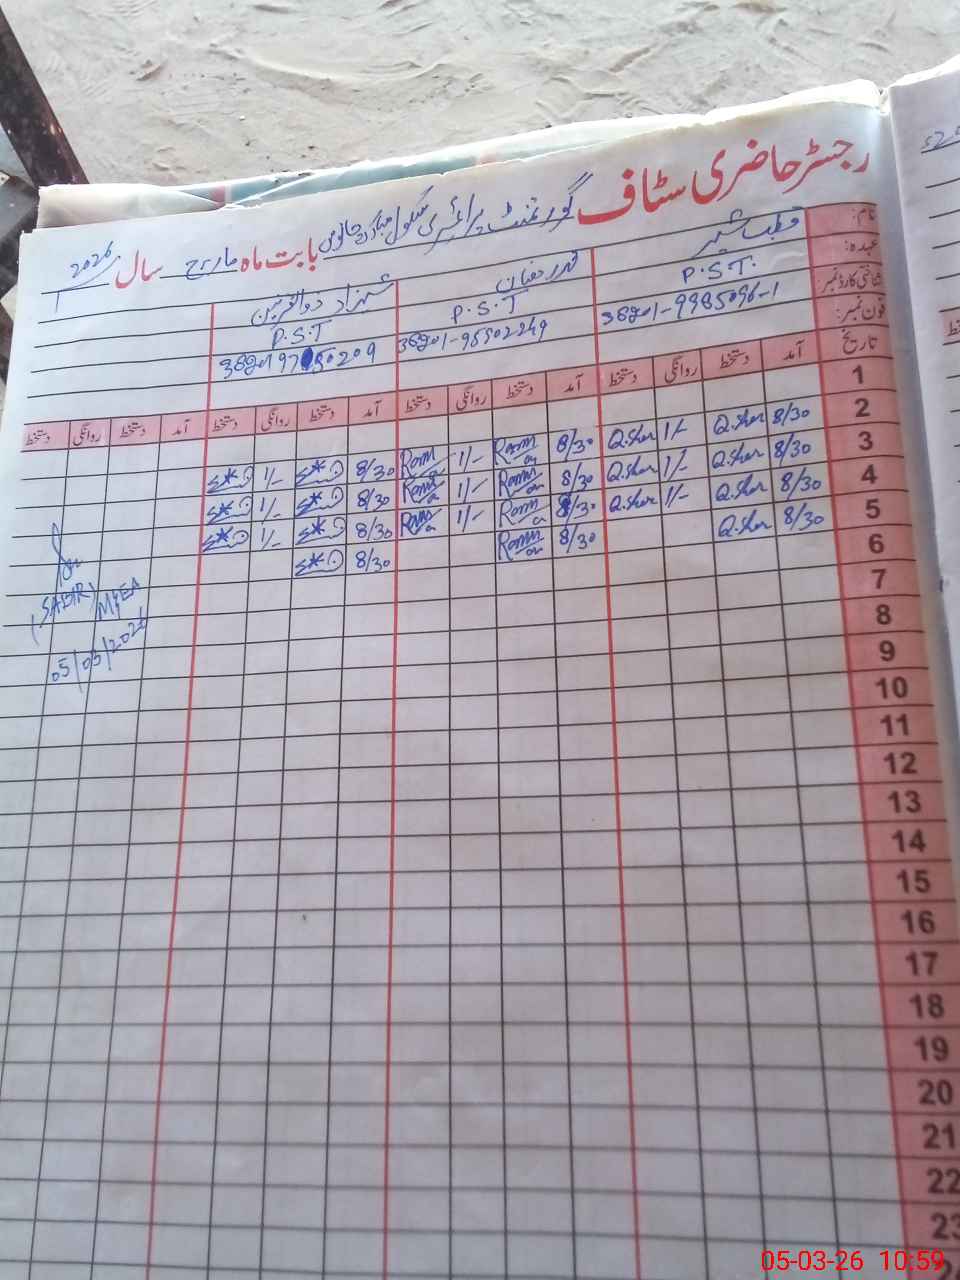 رجسٹر حاضری سٹاف گورنمنٹ پرائمری سکول بابت ماہ مارچ سال 2026
نام: قطب شیر شہزاد ذوالقرنین
عہدہ: P.S.T. P.S.T P.S.T
شناختی کارڈ نمبر: 38201-9985096-1 38201-98502249
فون نمبر:
تاریخ آمد دستخط روانگی دستخط آمد دستخط روانگی دستخط آمد دستخط روانگی دستخط آمد دستخط روانگی دستخط
1
2 8/30 Q.Sher 1/- Q.Sher 8/30 1/- 8/30 1/-
3 8/30 Q.Sher 1/- Q.Sher 8/30 1/- 8/30 1/-
4 8/30 Q.Sher 1/- Q.Sher 8/30 1/- 8/30 1/-
5 8/30 Q.Sher 8/30 8/30
6
7
8
9
10
11
12
13
14
15
16
17
18
19
20
21
22
23
(SABIR)
MEA
05/03/2026
05-03-26 10:59